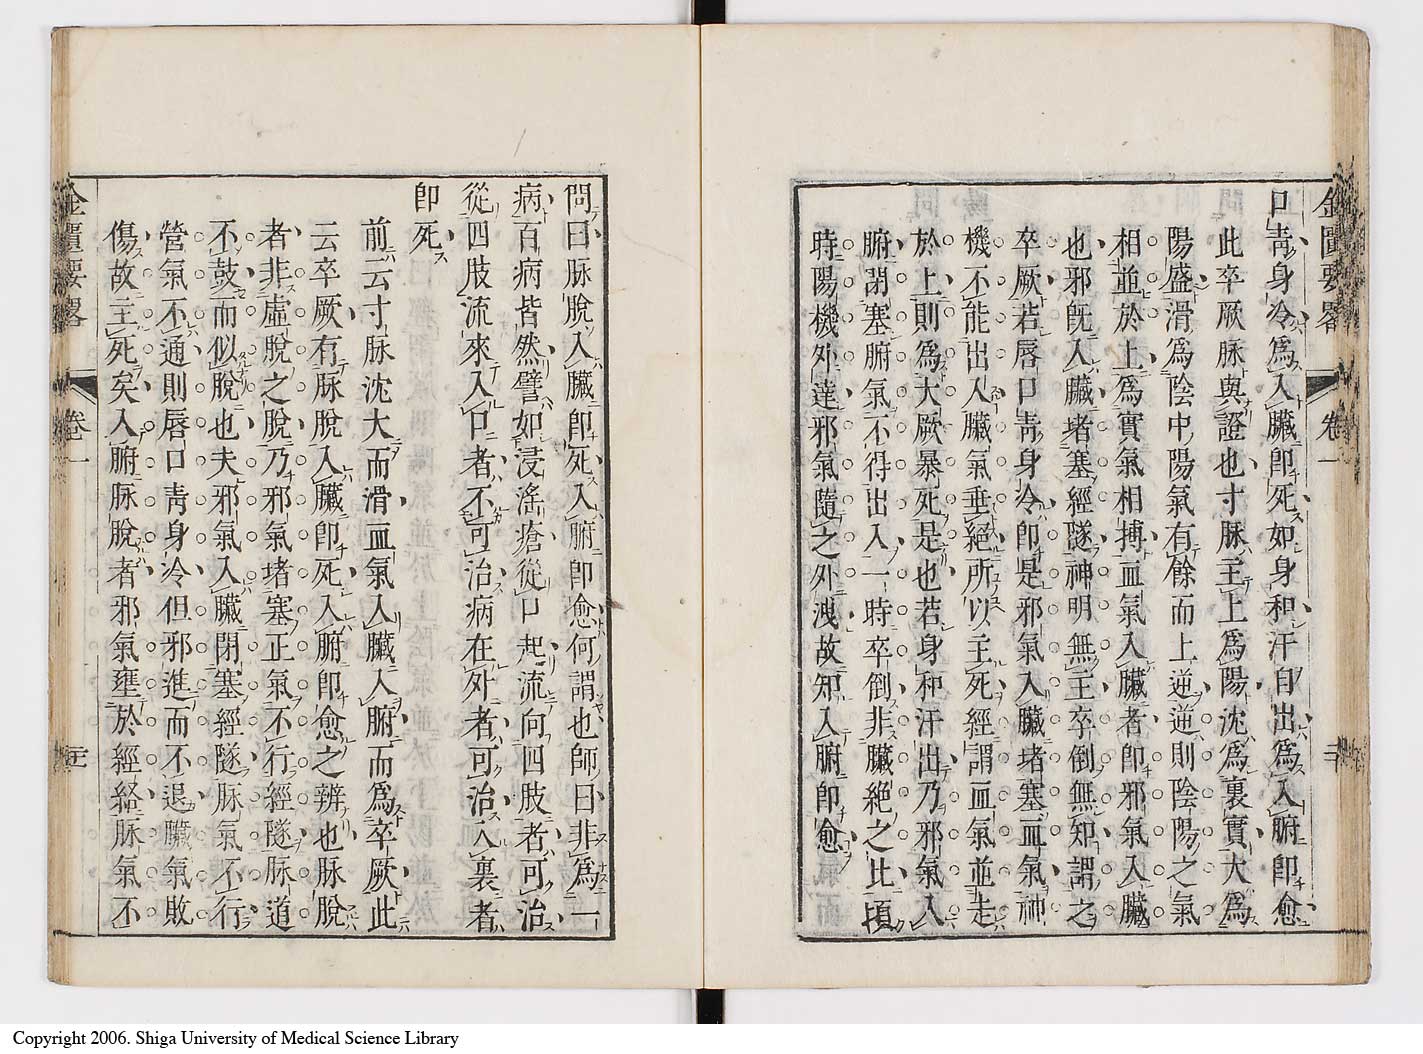 金匱要畧 卷一 二十
口青身冷爲入臟即死如身和汗自出爲入腑即愈
此卒厥脉與證也寸脉主上爲陽沈爲裏實大爲
陽盛滑爲陰中陽氣有餘而上逆逆則陰陽之氣
相並於上爲實氣相搏血氣入臟者即邪氣入臟
也邪旣入臟堵塞經隧神明無主卒倒無知謂之
卒厥若唇口青身冷即是邪氣入臟堵塞血氣神
機不能出入臟氣垂絕所以主死經謂血氣並走
於上則爲大厥暴死是也若身和汗出乃邪氣入
腑閉塞腑氣不得出入一時卒倒非臟絕之比頃
時陽機外達邪氣隨之外洩故知入腑即愈
問曰脉脫入臟即死入腑即愈何謂也師曰非爲一
病百病皆然譬如浸淫瘡從口起流向四肢者可治
從四肢流來入口者不可治病在外者可治入裏者
即死
前云寸脉沈大而滑血氣入臟入腑而爲卒厥此
云卒厥有脉脫入臟即死入腑即愈之辨也脉脫
者非虛脫之脫乃邪氣堵塞正氣不行經隧脉道
不鼓而似脫也夫邪氣入臟閉塞經隧脉氣不行
營氣不通則唇口青身冷但邪進而不退臟氣敗
傷故主死矣入腑脉脫者邪氣壅於經絡脉氣不
金匱要畧 卷一 廿一
Copyright 2006. Shiga University of Medical Science Library